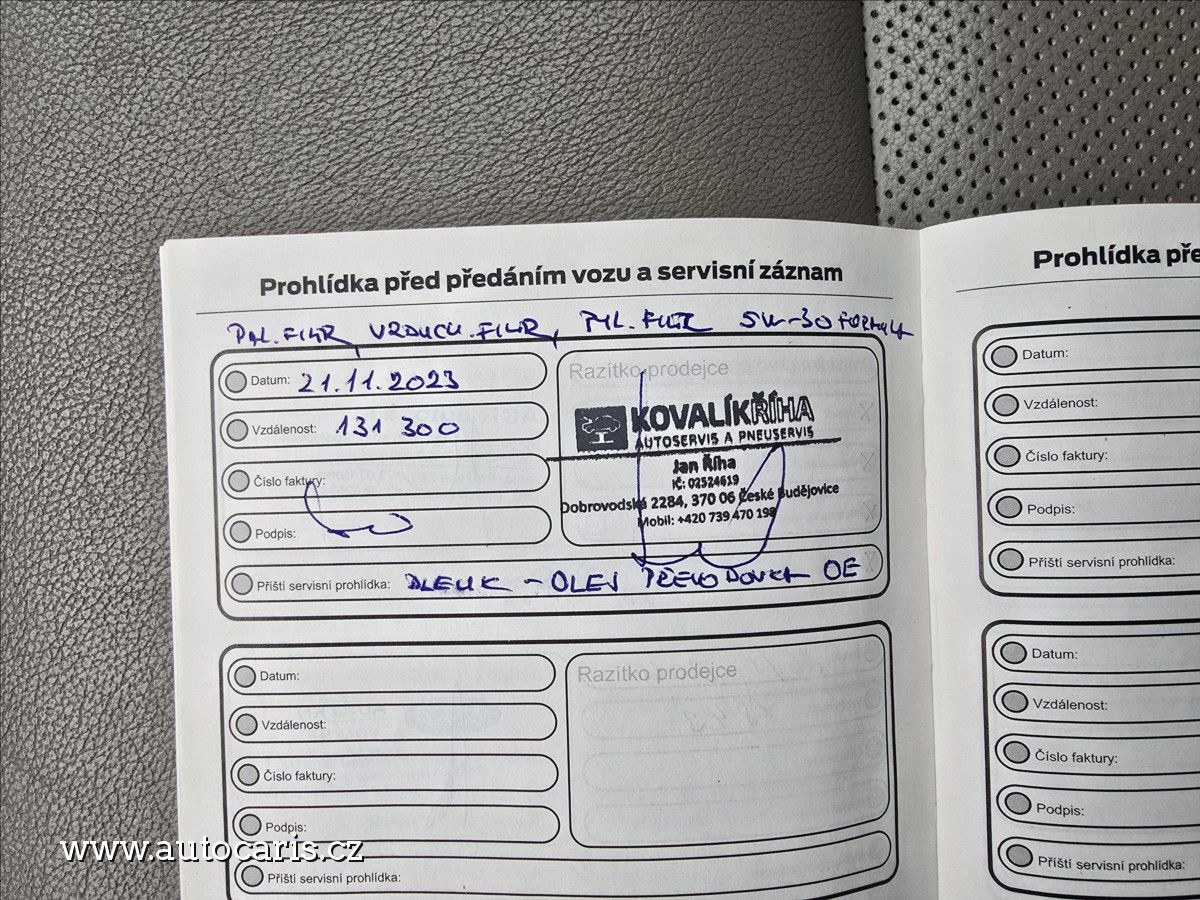 Prohlídka před předáním vozu a servisní záznam
PAL. FILTR, VZDUCH. FILTR, PYL. FILTR 5W-30 FORMULA
Datum: 21.11.2023
Vzdálenost: 131 300
Číslo faktury:
Podpis:
Razítko prodejce
KOVALÍKŘÍHA
AUTOSERVIS A PNEUSERVIS
Jan Říha
IČ: 02524619
Dobrovodská 2284, 370 06 České Budějovice
Mobil: +420 739 470 198
Příští servisní prohlídka: - OLEJ PŘEVODOVKA OE
Datum:
Vzdálenost:
Číslo faktury:
Podpis:
Razítko prodejce
Příští servisní prohlídka:
Prohlídka pře
Datum:
Vzdálenost:
Číslo faktury:
Podpis:
Příští servisní prohlídka:
Datum:
Vzdálenost:
Číslo faktury:
Podpis:
Příští servisní prohlídka:
www.autocaris.cz